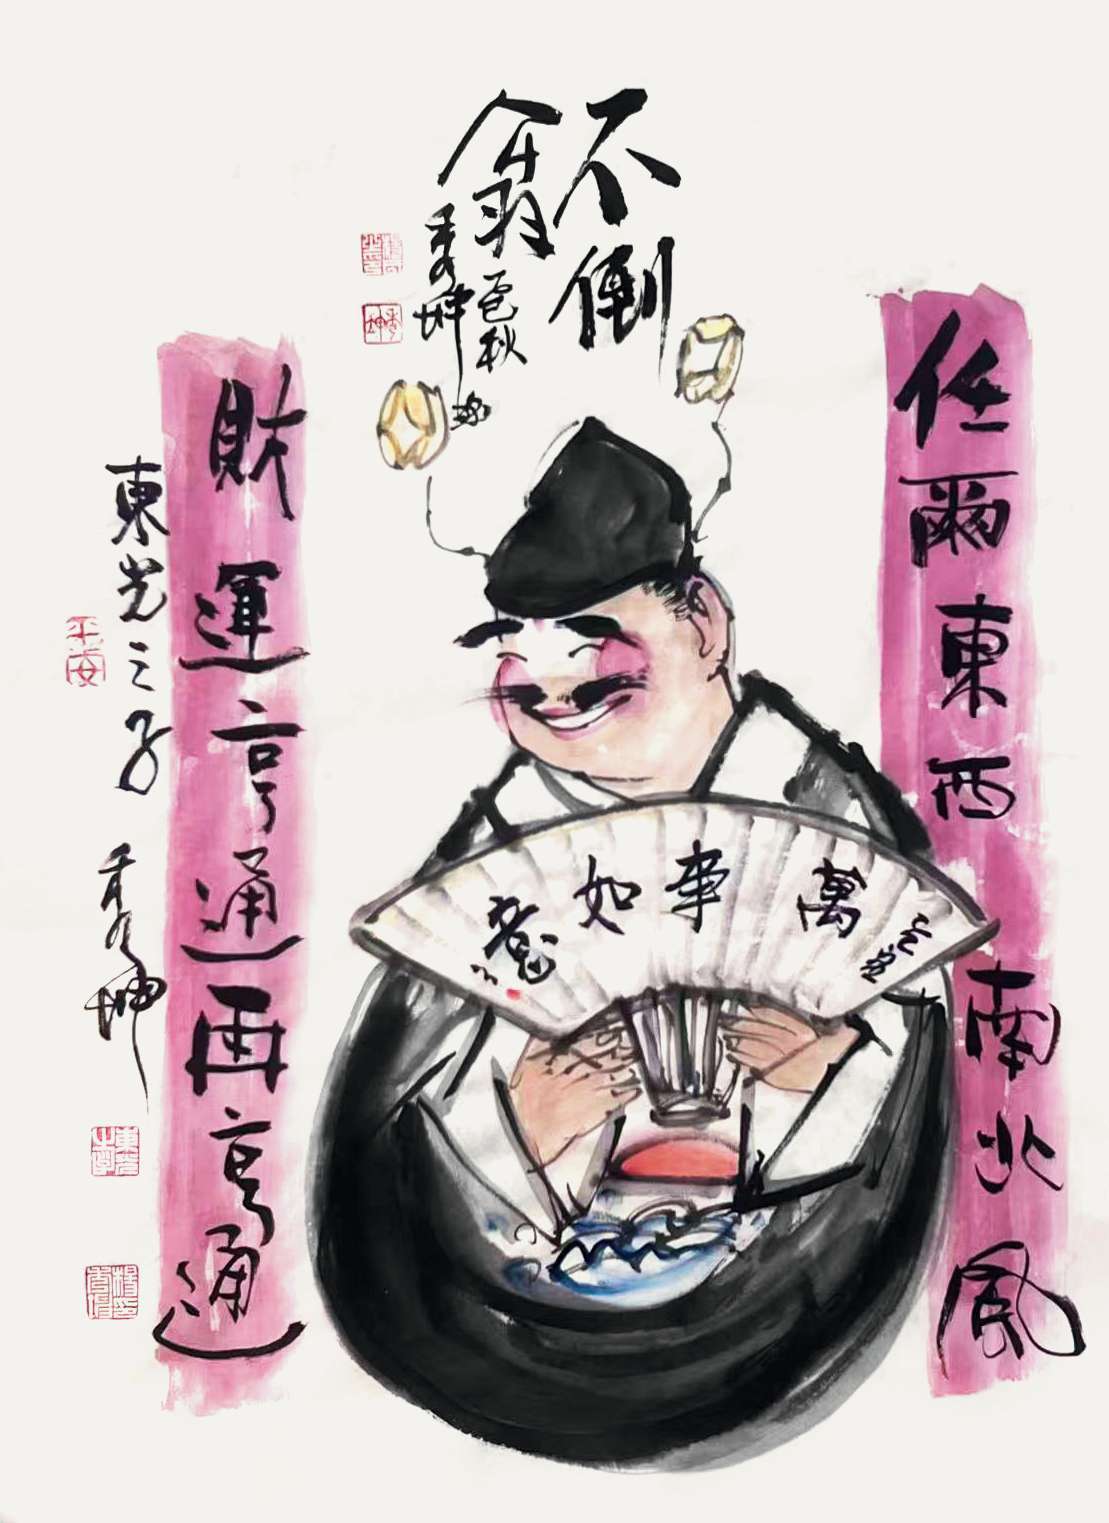 不倒
翁
秀坤
任爾東西南北風
萬事如意
財運亨通再亨通
東光之子
秀坤
平安
秀坤